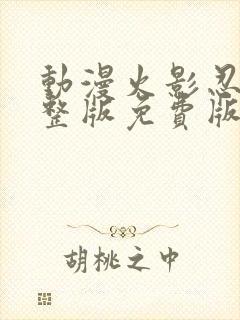 動漫火影忍
整版免費版
胡桃之中